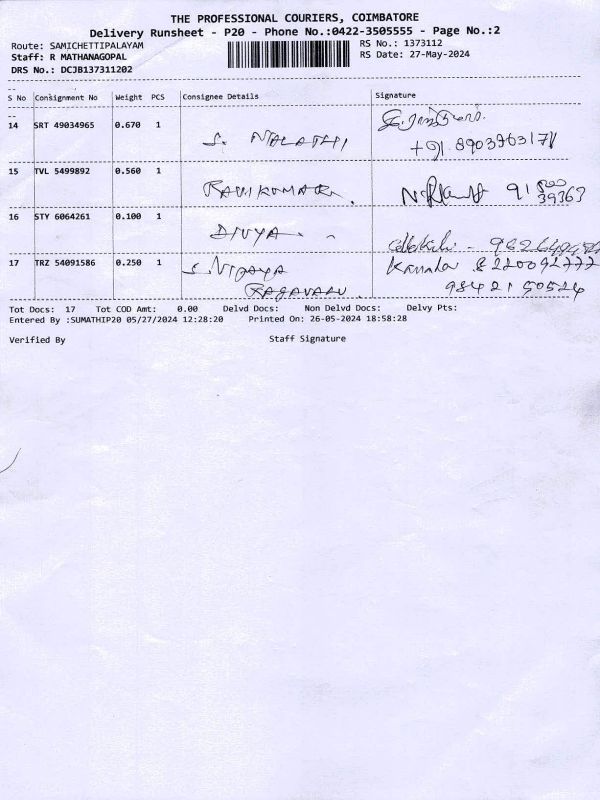 THE PROFESSIONAL COURIERS, COIMBATORE
Delivery Runsheet - P20 - Phone No.:0422-3505555 - Page No.:2
Route: SAMICHETTIPALAYAM
RS No.: 1373112
Staff: R MATHANAGOPAL
RS Date: 27-May-2024
DRS No.: DCJB137311202
S No Consignment No Weight PCS Consignee Details Signature
14 SRT 49034965 0.670 1 S. MALATHI
+91 8903963171
15 TVL 5499892 0.560 1 RAVIKUMAR.
16 STY 6064261 0.100 1 DIVYA
17 TRZ 54091586 0.250 1 S. VIJAYA Kamala 8220092777
RAGAVALU 9842150524
Tot Docs: 17 Tot COD Amt: 0.00 Delvd Docs: Non Delvd Docs: Delvy Pts:
Entered By :SUMATHIP20 05/27/2024 12:28:20 Printed On: 26-05-2024 18:58:28
Verified By Staff Signature